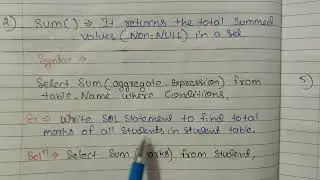 2) Sum() => It returns the total summed
values (Non-NULL) in a set
Syntax →
Select Sum(aggregate_expression) from
table_Name where Conditions,
5)
Ex => Write SQL Statement to find total
marks of all Students in Student table.
Sol^n → Select Sum(marks) from Student,